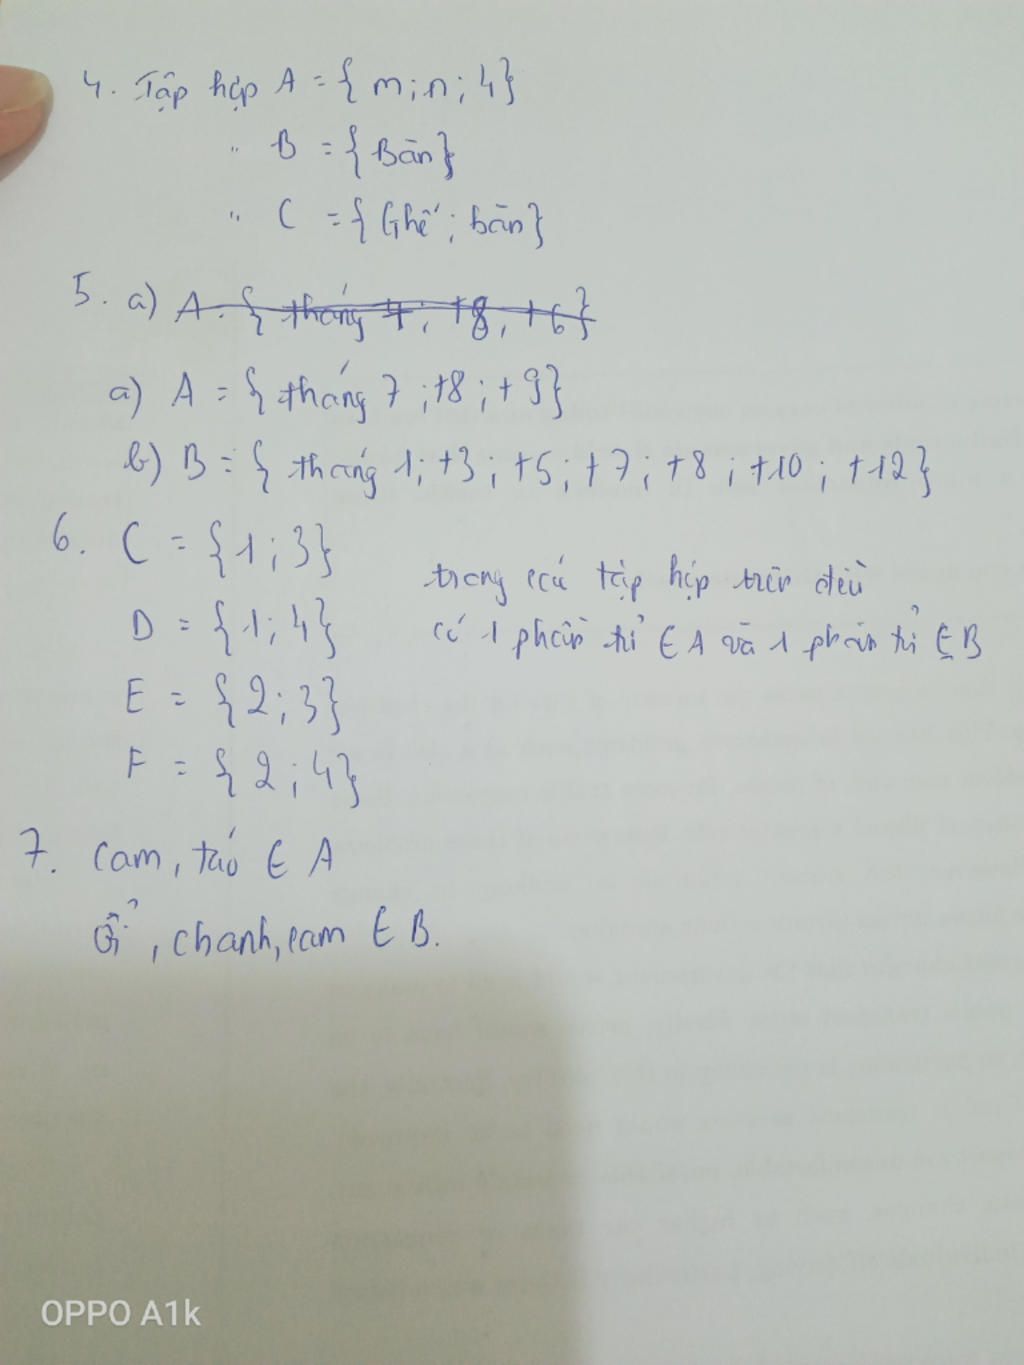 4. Tập hợp A = { m; n; 4}
" B = { Bàn}
" C = { Ghế; bàn}
5. a) A = { tháng 7; +8, +6}
a) A = { tháng 7; +8; + 9}
b) B = { tháng 1; +3; +5; +7; +8; +10; +12}
6. C = { 1; 3}
trong các tập hợp trên đều
D = { 1; 4}
có 1 phần tử ∈ A và 1 phần tử ∈ B
E = { 2; 3}
F = { 2; 4}
7. Cam, táo ∈ A
ổi, chanh, cam ∈ B.
OPPO A1k